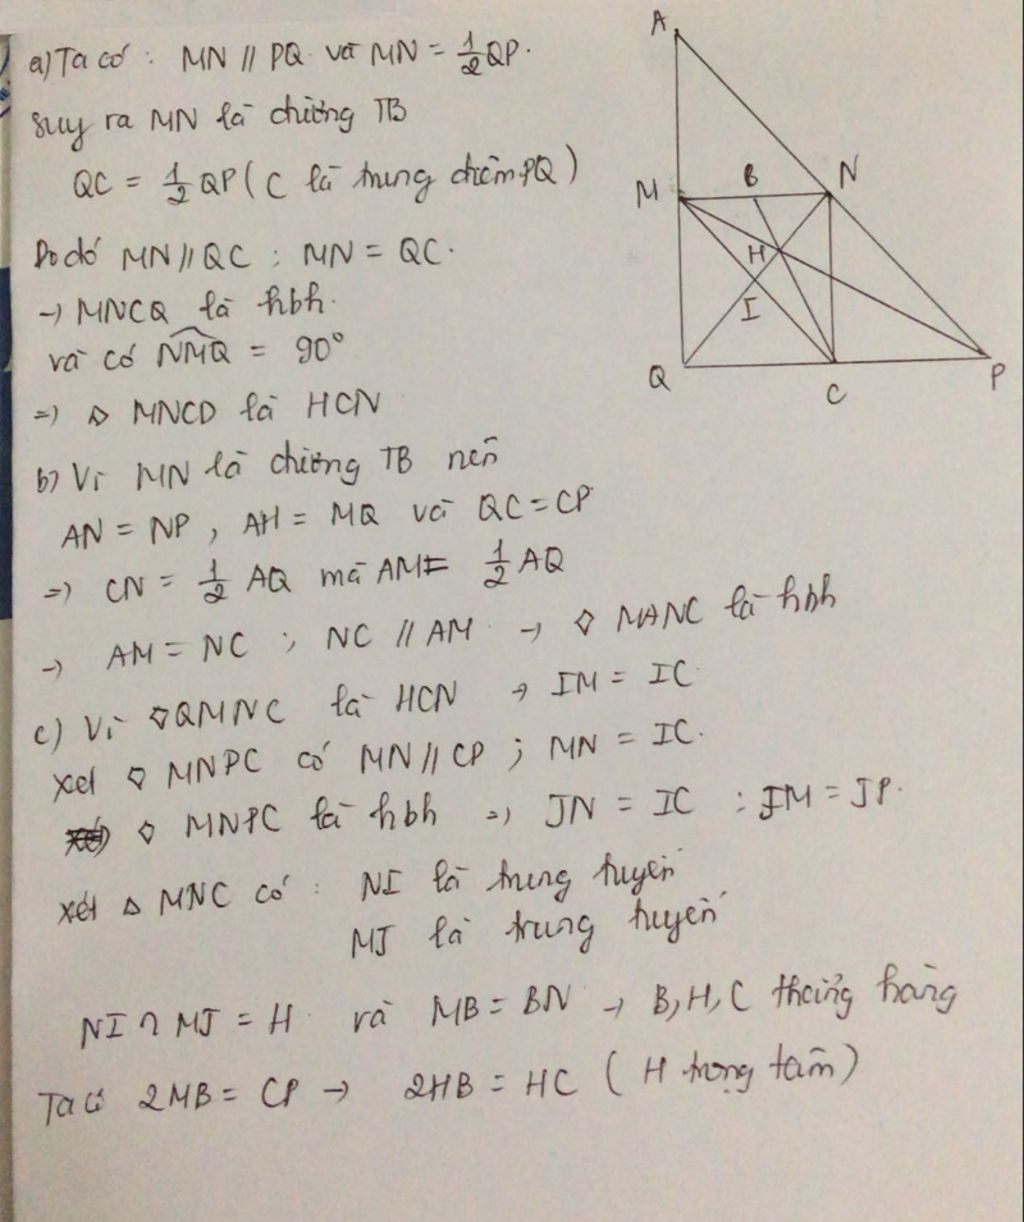 a) Ta có : MN // PQ và MN = 1/2 QP.
suy ra MN là đường TB
QC = 1/2 QP ( C là trung điểm PQ )
Do đó MN // QC ; MN = QC.
→ MNCQ là hbh.
và có NMQ = 90°
=> ▱ MNCD là HCN
b) Vì MN là đường TB nên
AN = NP , AH = MQ và QC = CP
=> CN = 1/2 AQ mà AM = 1/2 AQ
→ AM = NC ; NC // AM → ◇ MANC là hbh
c) Vì ◇ QMNC là HCN → IM = IC
xét ◇ MNPC có MN // CP ; MN = IC.
◇ MNPC là hbh => JN = IC : JM = JP.
xét △ MNC có : NI là trung tuyến
MJ là trung tuyến
NI ∩ MJ = H và MB = BN → B, H, C thẳng hàng
Ta có 2MB = CP → 2HB = HC ( H trọng tâm )
A
M
B
N
H
I
Q
C
P